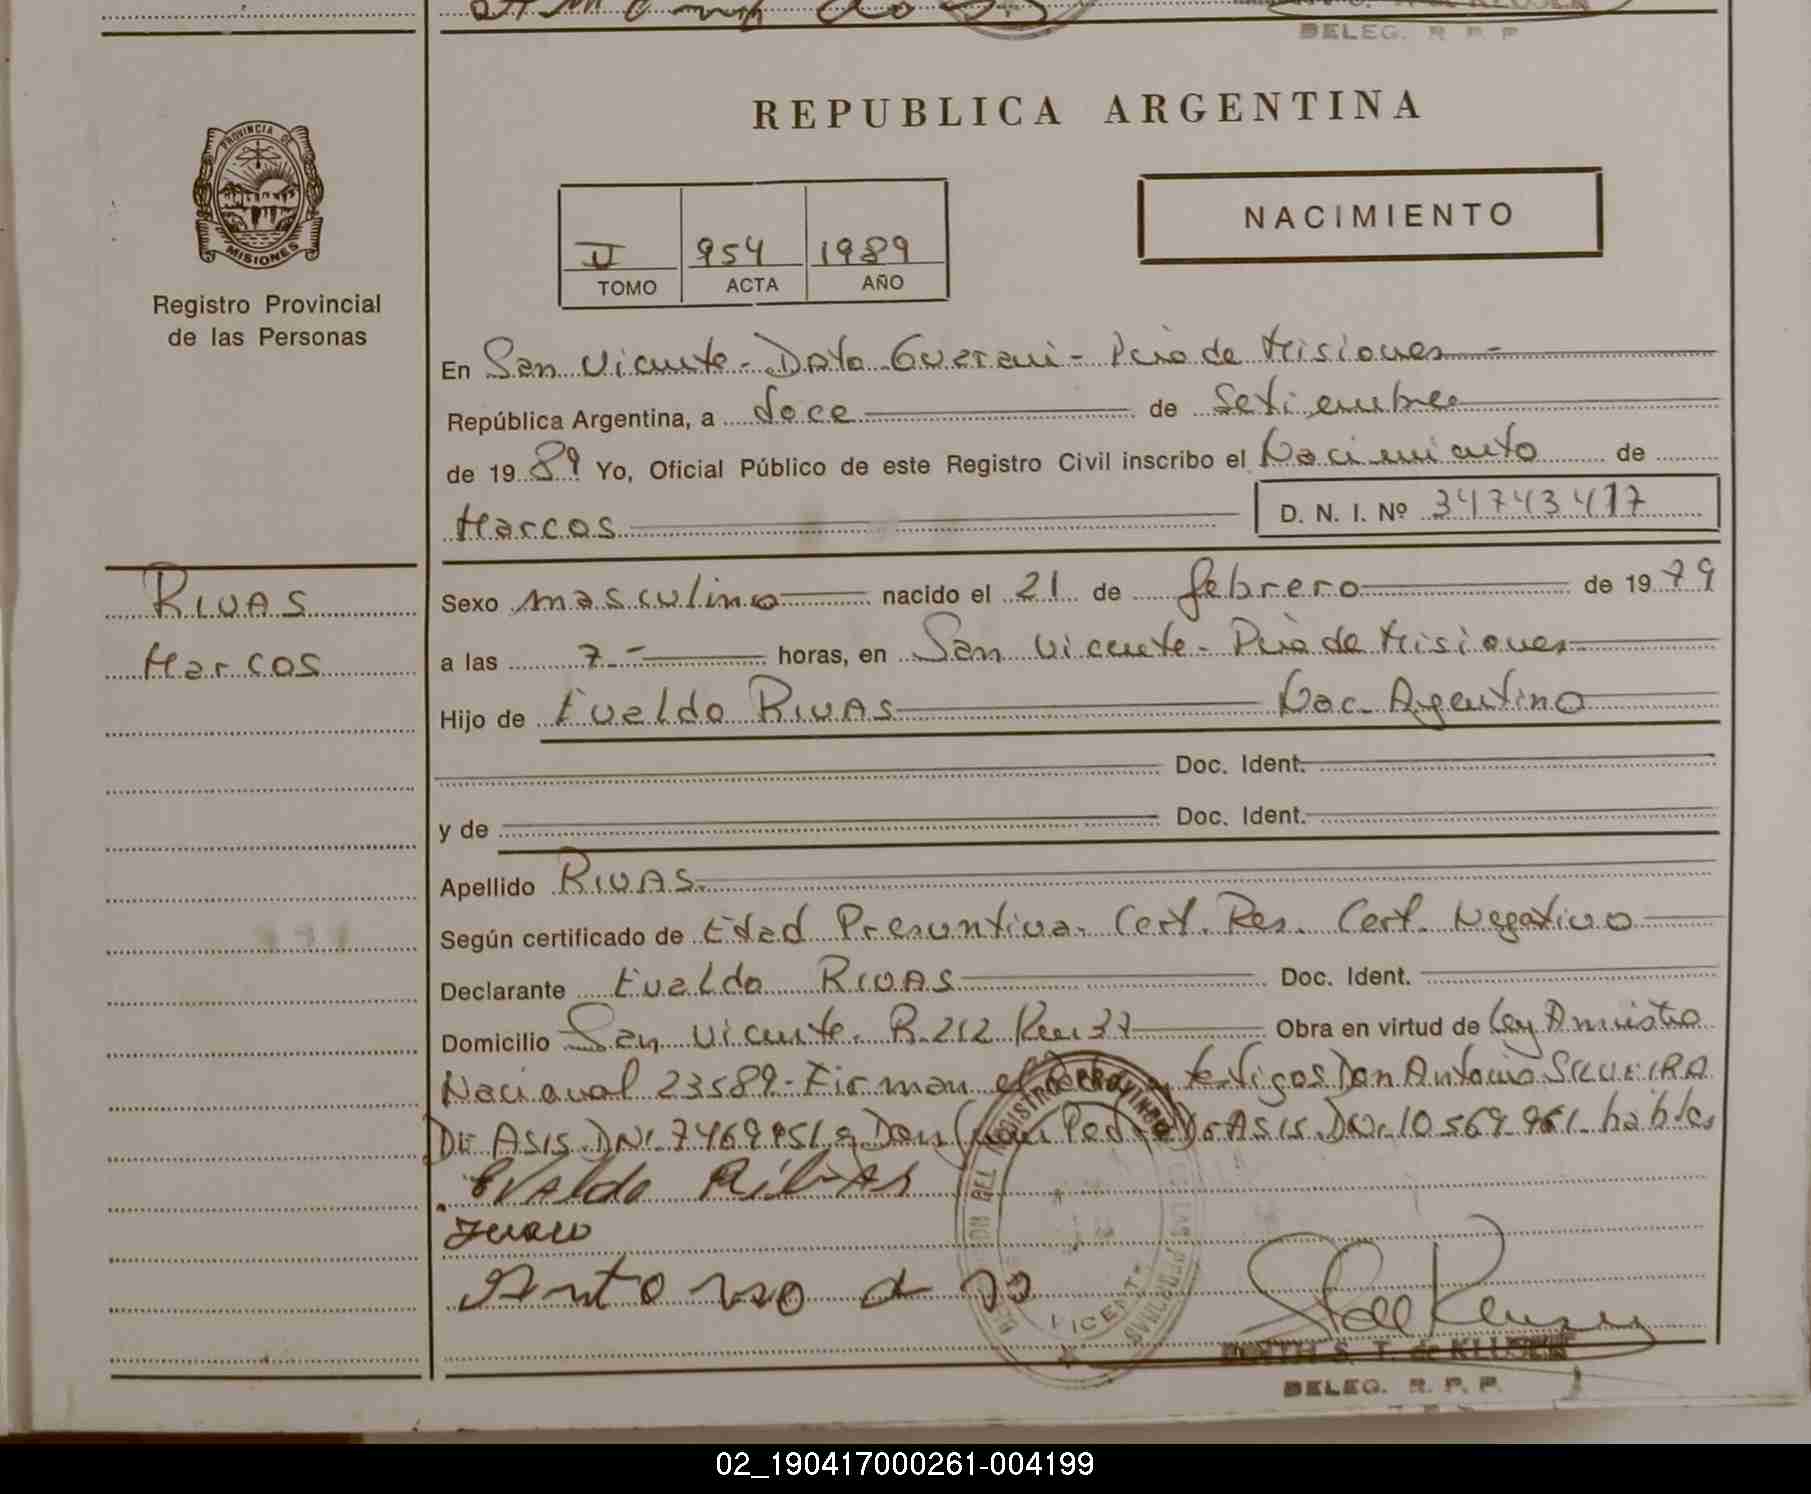 DELEG. R. P. P.
REPUBLICA ARGENTINA
PROVINCIA DE
MISIONES
Registro Provincial
de las Personas
NACIMIENTO
II 954 1989
TOMO ACTA AÑO
En San Vicente - Dpto Guarani - Pcia de Misiones
República Argentina, a doce de Setiembre
de 1989 Yo, Oficial Público de este Registro Civil inscribo el Nacimiento de
Marcos D. N. I. Nº 34743417
RIVAS
Marcos
Sexo masculino nacido el 21 de febrero de 1979
a las 7.- horas, en San Vicente - Pcia de Misiones
Hijo de Evaldo RIVAS Nac. Argentino
Doc. Ident.
y de Doc. Ident.
Apellido RIVAS
Según certificado de Edad Presuntiva. Cert. Res. Cert. Negativo
Declarante Evaldo RIVAS Doc. Ident.
Domicilio San Vicente. R. 212 Km 37 Obra en virtud de Ley Amnistia
Nacional 23589 - Firman el testigos Don Antonio SILVEIRA
DE ASIS DNI 7469951 y Don Juan De ASIS DNI 10569961 habiles
Evaldo Ribas
Juan
Antonio
EDITH S. T. de KLUSEN
DELEG. R. P. P.
02_190417000261-004199